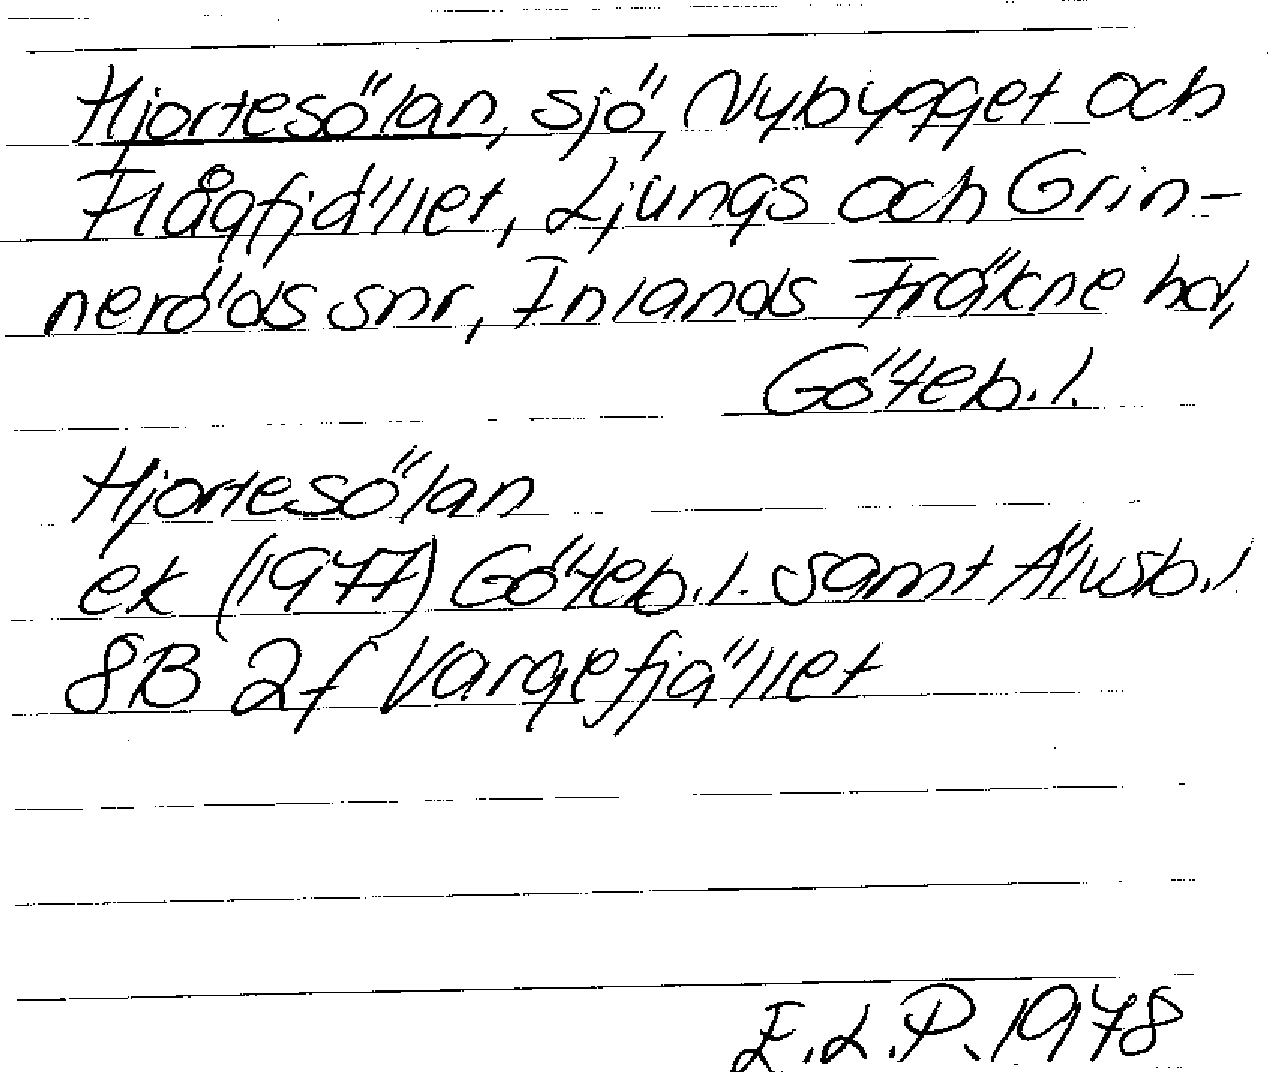 Hjortesölan, sjö, Nybygget och
Flågfjället, Ljungs och Grin-
neröds snr, Inlands Fräkne hd,
Göteb. l.
Hjortesölan
ek (1977) Göteb. l. samt Älvsb. l
8B 2f Vargefjället
E. L. P. 1978